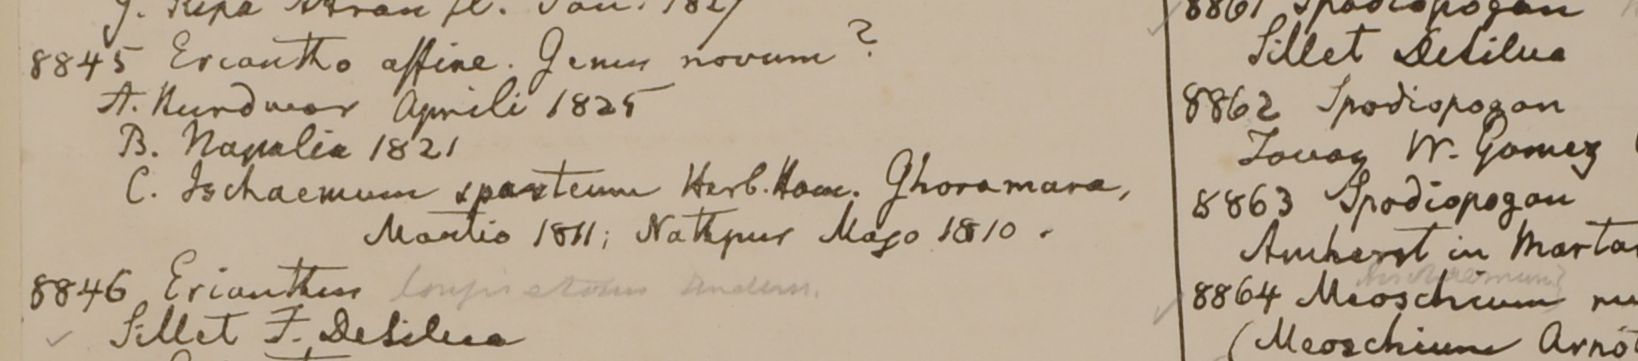 8845 Eriantho affine. Genus novum?
A. Hurdwar Aprili 1825
B. Napalia 1821
C. Ischaemum sparteum Herb. Ham. Ghoramara,
Martio 1811; Nathpur Mayo 1810.
8846 Erianthus
Sillet F. DeSilva
8861 Spodiopogon
Sillet DeSilva
8862 Spodiopogon
Tavoy W. Gomez
8863 Spodiopogon
Amherst in Marta
8864 Meoschium
(Meoschium Arnot